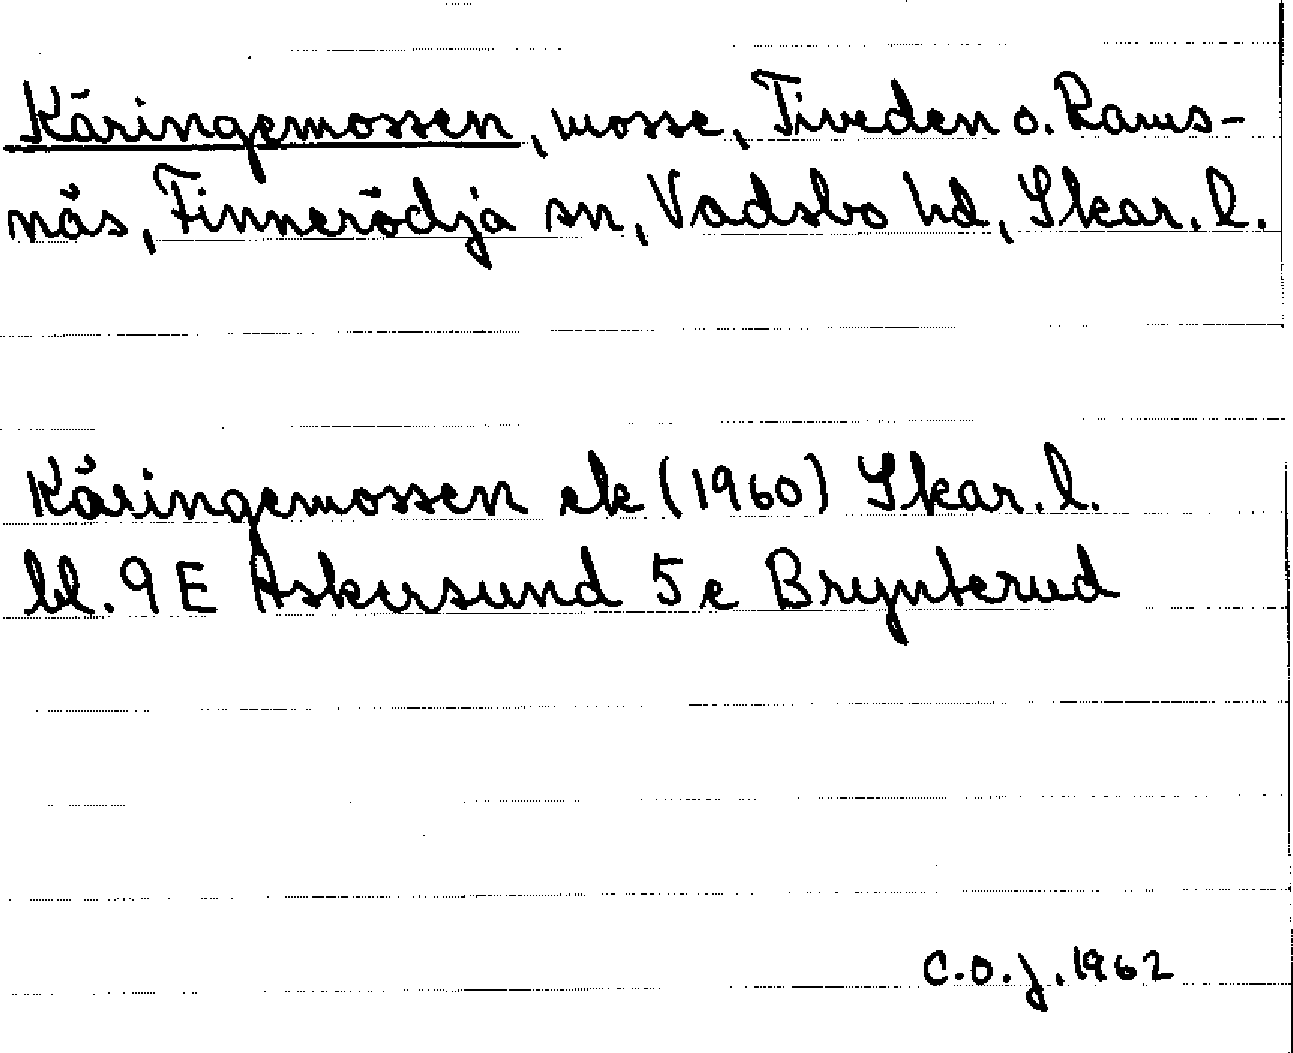 Käringemossen, mosse, Tiveden o. Rams-
näs, Finnerödja sn, Vadsbo hd, Skar. l.
Käringemossen ek (1960) Skar. l.
bl. 9 E Askersund 5 c Brynterud
C.O.J. 1962